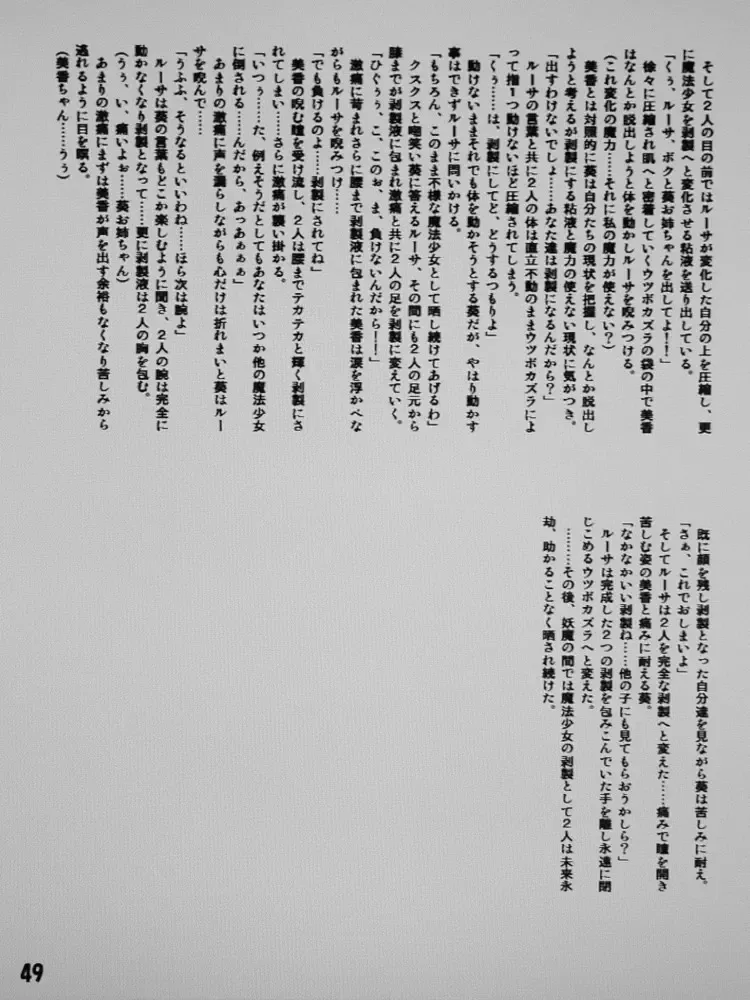 そして２人の目の前ではルーサが変化した自分の上を圧縮し、更
に魔法少女を剥製へと変化させる粘液を送り出している。
「くぅ、ルーサ、ボクと葵お姉ちゃんを出してよ！！」
徐々に圧縮され肌へと密着していくウツボカズラの袋の中で美香
はなんとか脱出しようと体を動かしルーサを睨みつける。
（これ変化の魔力……それに私の魔力が使えない？）
美香とは対照的に葵は自分たちの現状を把握し、なんとか脱出し
ようと考えるが剥製にする粘液と魔力の使えない現状に気がつき。
「出すわけないでしょ……あなた達は剥製になるんだから？」
ルーサの言葉と共に２人の体は直立不動のままウツボカズラによ
って指１つ動けないほど圧縮されてしまう。
「くぅ……は、剥製にしてど、どうするつもりよ」
動けないままそれでも体を動かそうとする葵だが、やはり動かす
事はできずルーサに問いかける。
「もちろん、このまま不様な魔法少女として晒し続けてあげるわ」
クスクスと嘲笑い葵に答えるルーサ、その間にも２人の足元から
膝までが剥製液に包まれ激痛と共に２人の足を剥製に変えていく。
「ひぐぅぅ、こ、このぉ、ま、負けないんだから！！」
激痛に苛まれさらに腰まで剥製液に包まれた美香は涙を浮かべな
がらもルーサを睨みつけ……
「でも負けるのよ……剥製にされてね」
美香の睨む瞳を受け流し、２人は腰までテカテカと輝く剥製にさ
れてしまい……さらに激痛が襲い掛かる。
「いつぅ……た、例えそうだとしてもあなたはいつか他の魔法少女
に倒される……んだから、あっあぁぁぁ」
あまりの激痛に声を漏らしながらも心だけは折れまいと葵はルー
サを睨んで……
「うふふ、そうなるといいわね……ほら次は腕よ」
ルーサは葵の言葉もどこか楽しむように聞き、２人の腕は完全に
動かなくなり剥製となって……更に剥製液は２人の胸を包む。
（うぅ、い、痛いよぉ……葵お姉ちゃん）
あまりの激痛にまずは美香が声を出す余裕もなくなり苦しみから
逃れるように目を瞑る。
（美香ちゃん……うぅ）
既に顔を残し剥製となった自分達を見ながら葵は苦しみに耐え。
「さぁ、これでおしまいよ」
そしてルーサは２人を完全な剥製へと変えた……痛みで瞳を開き
苦しむ姿の美香と痛みに耐える葵。
「なかなかいい剥製ね……他の子にも見てもらおうかしら？」
ルーサは完成した２つの剥製を包みこんでいた手を離し永遠に閉
じこめるウツボカズラへと変えた。
………その後、妖魔の間では魔法少女の剥製として２人は未来永
劫、助かることなく晒され続けた。
49